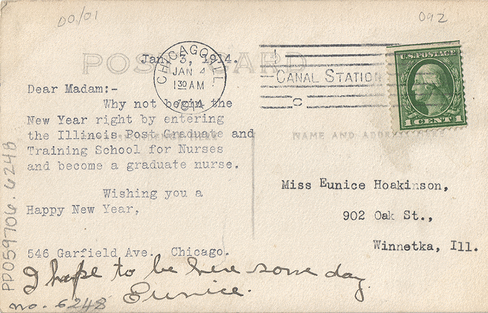 DO/01
092
POST CARD
Jan. 3, 1914.
CHICAGO, ILL.
JAN 4
1 30 AM
1914
CANAL STATION
U.S. POSTAGE
1 CENT 1
Dear Madam:-
Why not begin the
New Year right by entering
the Illinois Post Graduate and
Training School for Nurses
and become a graduate nurse.
NAME AND ADDRE
Wishing you a
Happy New Year,
Miss Eunice Hoakinson,
902 Oak St.,
Winnetka, Ill.
546 Garfield Ave. Chicago.
I hope to be here some day.
Eunice.
no. 6248
PP059706.6248